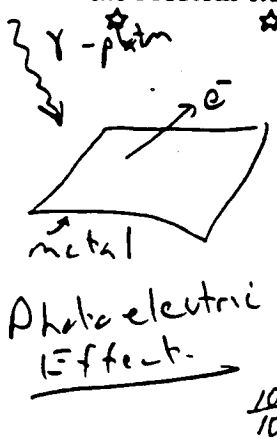 γ - photon
e⁻
metal
Photoelectric
Effect.
10
10